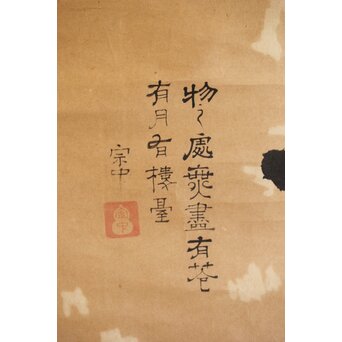 物々處無盡有花
有月有樓臺
宗中